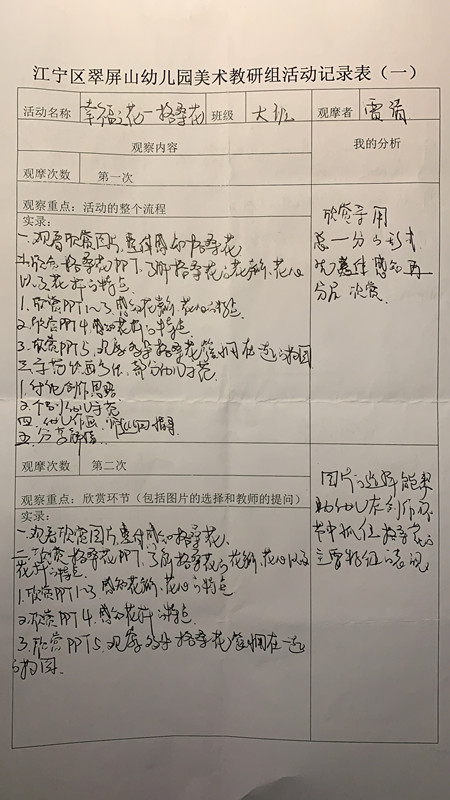 江宁区翠屏山幼儿园美术教研组活动记录表（一）
活动名称 幸福之花—格桑花 班级 大班 观摩者
观察内容 我的分析
观摩次数 第一次
观察重点：活动的整个流程
实录：
一.观看欣赏图片,整体感知格桑花
二.欣赏格桑花PPT,了解格桑花的花瓣、花心
以及花杆的特点
1.欣赏PPT1~3,感知花瓣、花心的特点
2.欣赏PPT4,感知花杆的特点
3.欣赏PPT5,观摩多朵格桑花簇拥在一起的构图
三.示范
1.讨论创作思路
2.个别幼儿示范
四.幼儿作画,师巡回指导
五.分享
欣赏采用
总—分的形式
先整体感知再
分层次欣赏
观摩次数 第二次
观察重点：欣赏环节（包括图片的选择和教师的提问）
实录：
一.观看欣赏图片,整体感知格桑花.
二.欣赏格桑花PPT,了解格桑花的花瓣、花心以及
花杆的特点
1.欣赏PPT1~3,感知花瓣、花心的特点
2.欣赏PPT4,感知花杆的特点
3.欣赏PPT5,观摩多朵格桑花簇拥在一起
的构图.
图片的选择能帮
助幼儿在创作环
节中抓住格桑花的
主要特征表现